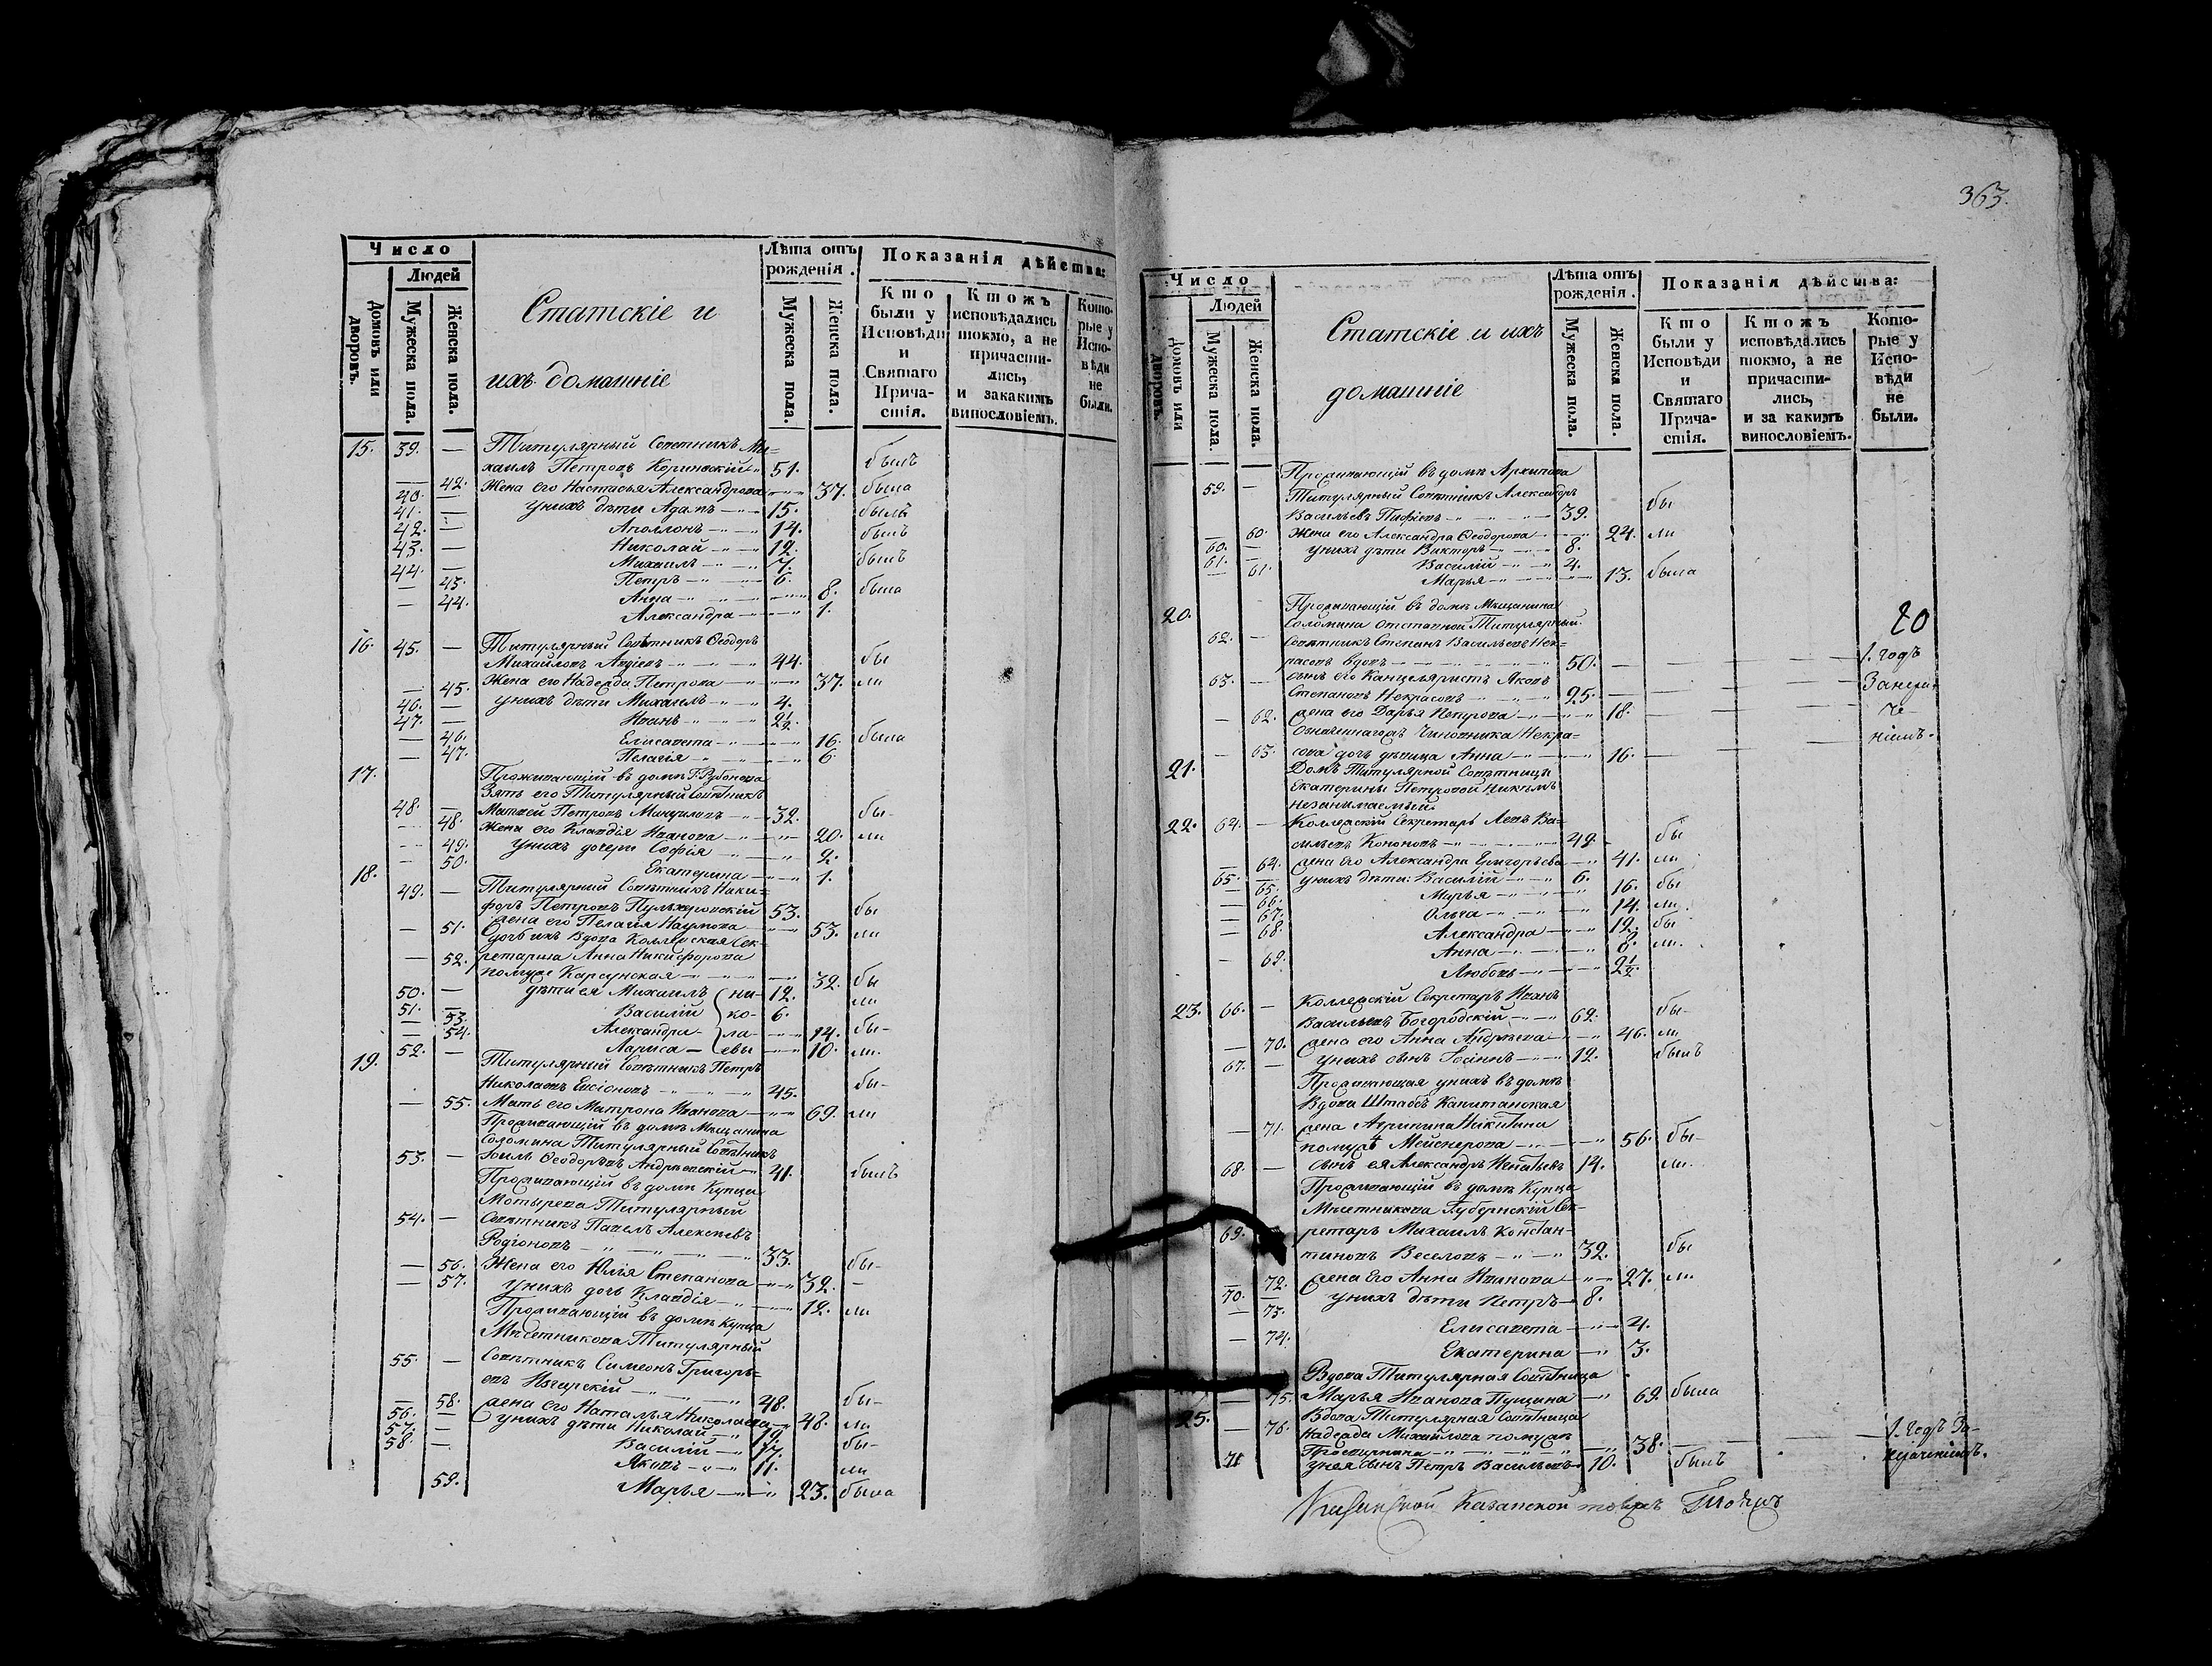 363.
Число
Людей
Домовъ или дворовъ.
Мужеска пола.
Женска пола.
Статскіе и
ихъ домашніе
Лѣта отъ рожденія.
Мужеска пола.
Женска пола.
Показанія дѣйства:
Кто были у Исповѣди и Святаго Причастія.
Ктожъ исповѣдались токмо, а не причастились, и закакимъ винословіемъ.
Которые у Исповѣди не были.
15. 39. — Титулярный Совѣтникъ Ми=
хаилъ Петровъ 51. былъ
— 42. Жена его Настасья Александрова 37. была
40. — унихъ дѣти Адамъ 15. былъ
41. — Аполлонъ 14. былъ
42. — Николай 12. былъ
43. — Михаилъ 7.
44. — Петръ 6.
— 43. Анна 8. была
— 44. Александра 1.
16. 45. — Титулярный Совѣтникъ Ѳеодоръ
Михайловъ 44. бы
— 45. Жена его Надежда Петрова 37. ли
46. — унихъ дѣти Михаилъ 4.
47. — Иванъ 2½
— 46. Елисавета 16. была
— 47. Пелагія 6
17. Проживающій въ домѣ
Зять его Титулярный Совѣтникъ
48. — Матвей Петровъ 32. бы-
— 48. Жена его Клавдія Иванова 20. ли
— 49. унихъ дочери Софія 2.
— 50. Екатерина 1.
18. 49. — Титулярный Совѣтникъ Ники=
форъ Петровъ Пульхеровскій 53. бы
— 51. жена его Пелагія Наумова 53. ли
дочь ихъ Вдова Коллежская Сек-
— 52. ретарша Анна Никифорова
помужѣ Карсунская 32. бы
50. — дѣти ея Михаилъ ни- 12. ли
51. — Василій ко- 6.
— 53. Александра ла- 14. бы-
— 54. Лариса евы 10. ли.
19. 52. — Титулярный Совѣтникъ Петръ
Николаевъ 45. бы-
— 55. Мать его Матрона Иванова 69. ли
Проживающій въ домѣ Мѣщанина
Соломина Титулярный Совѣтникъ
53. — Ѳеодоровъ Андреевскій 41. былъ
Проживающій въ домѣ Купца
Мотырева Титулярный
54. — Совѣтникъ Павелъ Алексѣевъ
Родіоновъ 33.
— 56. Жена его Юлія Степанова 32. бы-
— 57. унихъ дочь Клавдія 12. ли
Проживающій въ домѣ Купца
Мѣсетникова Титулярный
55. — Совѣтникъ Симеонъ Григорь=
евъ 48.
— 58. жена его Наталья Николаева 48. бы-
56. — унихъ дѣти Николай 19. ли
57. — Василій 17. бы-
58. — Яковъ 11. ли
59. Марья 23. была
Число
Людей
Домовъ или дворовъ.
Мужеска пола.
Женска пола.
Статскіе и ихъ
домашніе
Лѣта отъ рожденія.
Мужеска пола.
Женска пола.
Показанія дѣйства:
Кто были у Исповѣди и Святаго Причастія.
Ктожъ исповѣдались токмо, а не причастились, и за какимъ винословіемъ.
Которые у Исповѣди не были.
Проживающій въ домѣ Архипова
59. — Титулярный Совѣтникъ Александръ
Васильевъ 39. бы
— 60. Жена его Александра Ѳеодорова 24. ли
60. — унихъ дѣти Викторъ 8.
61. — Василій 4.
— 61. Марья 13. была
20. Проживающій въ домѣ Мѣщанина
Соломина отставной Титулярный
62. — Совѣтникъ Степанъ Васильевъ Нек-
расовъ вдовъ 50.
20
1. годъ
63. — сынъ его Канцеляристъ Яковъ
Степановъ Некрасовъ 25.
— 62. жена его Дарья Петрова 18.
Означеннагожъ Чиновника Некра=
— 63. сова дочь дѣвица Анна 16.
21. Домъ Титулярной Совѣтницы
Екатерины Петровой никѣмъ
незанимаемый.
22. 64. — Коллежскій Секретарь Левъ Ва=
сильевъ Кононовъ 49. бы
— 64. жена его Александра Григорьева 41. ли
65. — унихъ дѣти: Василій 6.
— 65. Марья 16. бы
— 66. Ольга 14. ли.
— 67. Александра 12. бы
— 68. Анна 8. ли.
— 69. Любовь 2½.
23. 66. — Коллежскій Секретарь Иванъ
Васильевъ Богородскій 62. бы-
— 70. жена его Анна Андреева 46. ли
67. — унихъ сынъ Іоаннъ 12. былъ
Проживающая унихъ въ домѣ
Вдова Штабсъ Капитанская
— 71. жена Агрипина Никитина
помужѣ 56. бы-
68. — сынъ ея Александръ Игнатьевъ 14. ли.
Проживающій въ домѣ Купца
Мѣсетникова Губернскій Сек-
69. ретарь Михаилъ Констан-
тиновъ Веселовъ 32. бы
— 72. жена его Анна Иванова 27. ли
70. — унихъ дѣти Петръ 8.
— 73. Елисавета 4.
— 74. Екатерина 3.
Вдова Титулярная Совѣтница
— 75. Марья Иванова Пущина 69. была
25. Вдова Титулярная Совѣтница
— 76. Надежда Михайлова помужѣ
38. 1. годъ За-
71 унея сынъ Петръ Васильевъ 10. былъ
Казанской